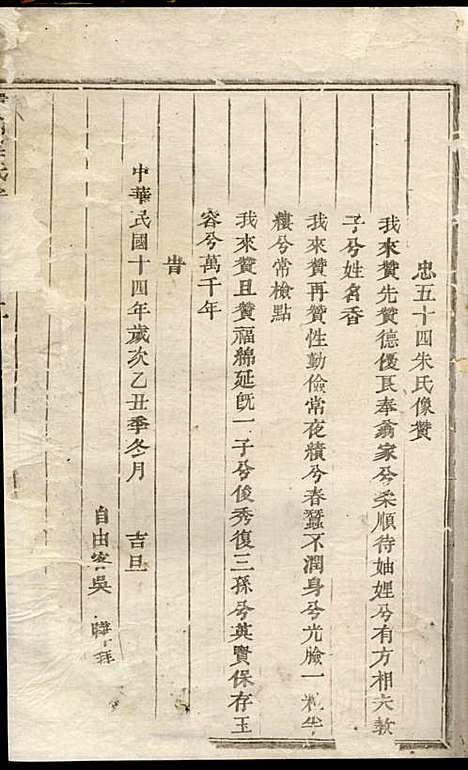 忠五十四朱氏像贊
我來贊先贊德優艮奉翁家兮柔順待妯娌兮有方相夫教
子兮姓名香
我來贊再贊性勤儉常夜績兮春蠶不潤身兮光臉一粒半
縷兮常檢點
我來贊且贊福綿延旣一子兮俊秀復三孫兮英賢保存玉
容兮萬千年
旹
中華民國十四年歲次乙丑季冬月 吉旦
自由客吳 拜